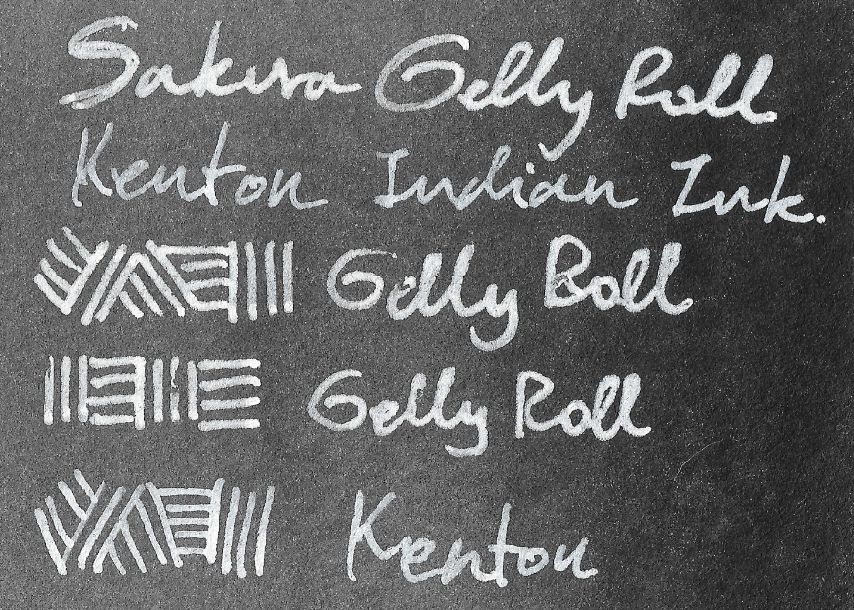 Sakura Gelly Roll
Kenton Indian Ink.
Gelly Roll
Gelly Roll
Kenton